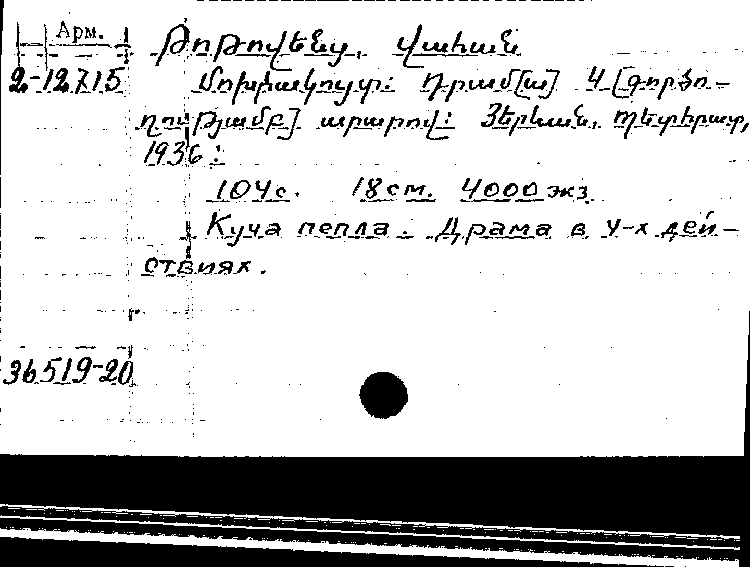 Арм.
Թոթովենց, Վահան
2-12715 Մոխրակույտ: Դրամ[ա] 4 [գործո-
ղությամբ] արարով: Յերևան, Պետհրատ,
1936:
104с. 18см. 4000 экз
Куча пепла. Драма в 4-х дей-
ствиях.
36519-20